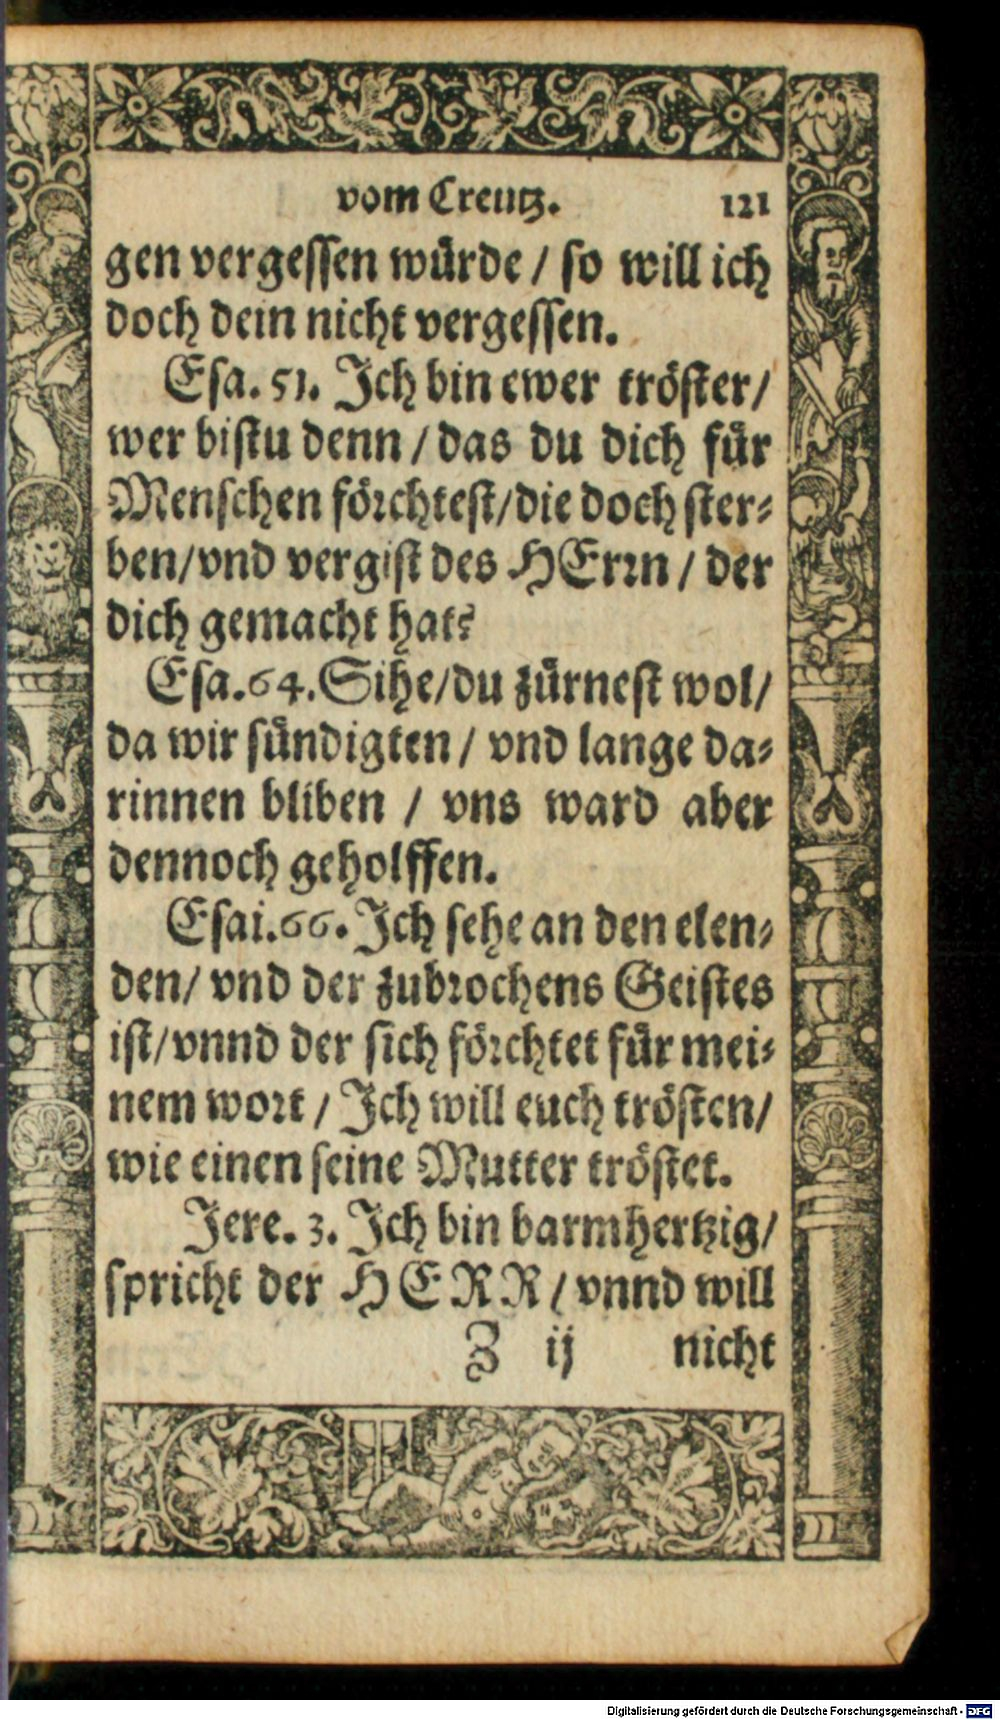 vom Creutz. 121
gen vergeſſen würde / ſo will ich
doch dein nicht vergeſſen.
Eſa. 51. Ich bin ewer tröſter/
wer biſtu denn / das du dich für
Menſchen förchteſt/die doch ſter⸗
ben/vnd vergiſt des HErrn / der
dich gemacht hat?
Eſa.64.Sihe/du zürneſt wol/
da wir ſündigten / vnd lange da⸗
rinnen bliben / vns ward aber
dennoch geholffen.
Eſai.66. Ich ſehe an den elen⸗
den/ vnd der zubrochens Geiſtes
iſt/vnnd der ſich förchtet für mei⸗
nem wort / Ich will euch tröſten/
wie einen ſeine Mutter tröſtet.
Jere. 3. Ich bin barmhertzig/
ſpricht der HERR / vnnd will
Z ij nicht
Digitalisierung gefördert durch die Deutsche Forschungsgemeinschaft - DFG